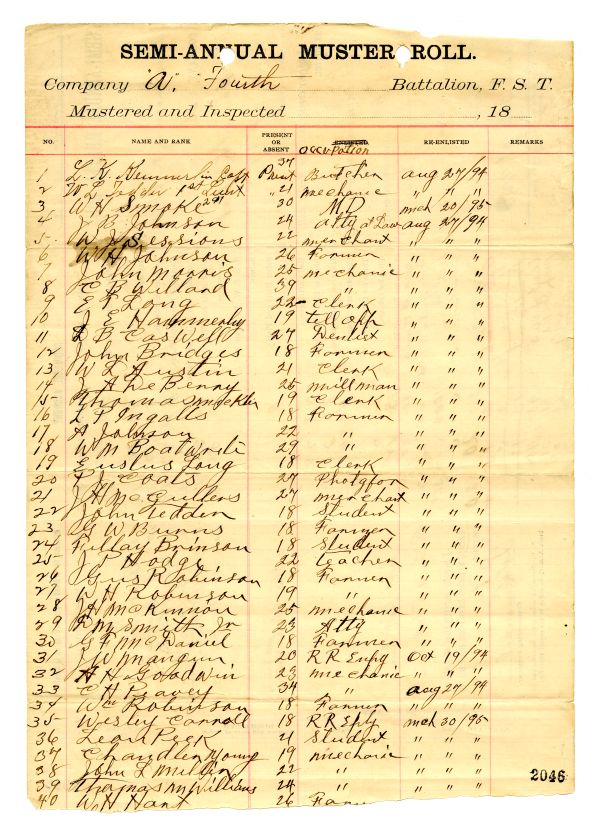 SEMI-ANNUAL MUSTER ROLL.
Company "A," Fourth Battalion, F. S. T.
Mustered and Inspected , 18
NO. NAME AND RANK PRESENT OR ABSENT ENLISTED Occupation RE-ENLISTED REMARKS
1 L. K. Capt Present 37 Butcher Aug 27/94
2 W L Tedder 1st Lieut " 21 mechanic " " "
3 W H Smoke 2nd 30 M.D mch 20/95
4 Johnson 24 Atty at Law Aug 27/94
5 W Sessions 22 merchant " " "
6 W H Johnson 26 Farmer " " "
7 John Morris 25 mechanic " " "
8 C B Willard 39 " " " "
9 E F Long 22 Clerk " " "
10 J E Hammerly 19 Tel opp " " "
11 L B Caswell 27 Dentist " " "
12 John Bridges 18 Farmer " " "
13 W L Austin 21 Clerk " " "
14 J A DeBerry 25 mill man " " "
15 Thomas 19 Clerk " " "
16 L P Ingalls 18 Farmer " " "
17 A Johnson 22 " " " "
18 Wm Boatwrite 29 " " " "
19 Eustus Long 18 Clerk " " "
20 J Coats 27 Photgfer " " "
21 J H McCullers 27 merchant " " "
22 John Tedder 18 Student " " "
23 G W Burns 18 Farmer " " "
24 Brinson 18 Student " " "
25 J P Hodge 22 teacher " " "
26 Gus Robinson 18 Farmer " " "
27 W H Robinson 19 " " " "
28 J H McKinnon 25 mechanic " " "
29 Smith Jr 23 Atty " " "
30 McDaniel 18 Farmer " " "
31 J W Mangum 20 RR Emply Oct 19/94
32 H H Goodwin 23 mechanic " " "
33 C H Peavey 34 " Aug 27/94
34 Wm Robinson 18 Farmer " " "
35 Wesley Carroll 18 RR Eply mch 30/95
36 Leon Peck 21 Student " " "
37 Chandler Young 19 mechanic " " "
38 John L 22 " " " "
39 Thomas M Williams 24 " " " "
40 W H Hart 26 " " "
2046